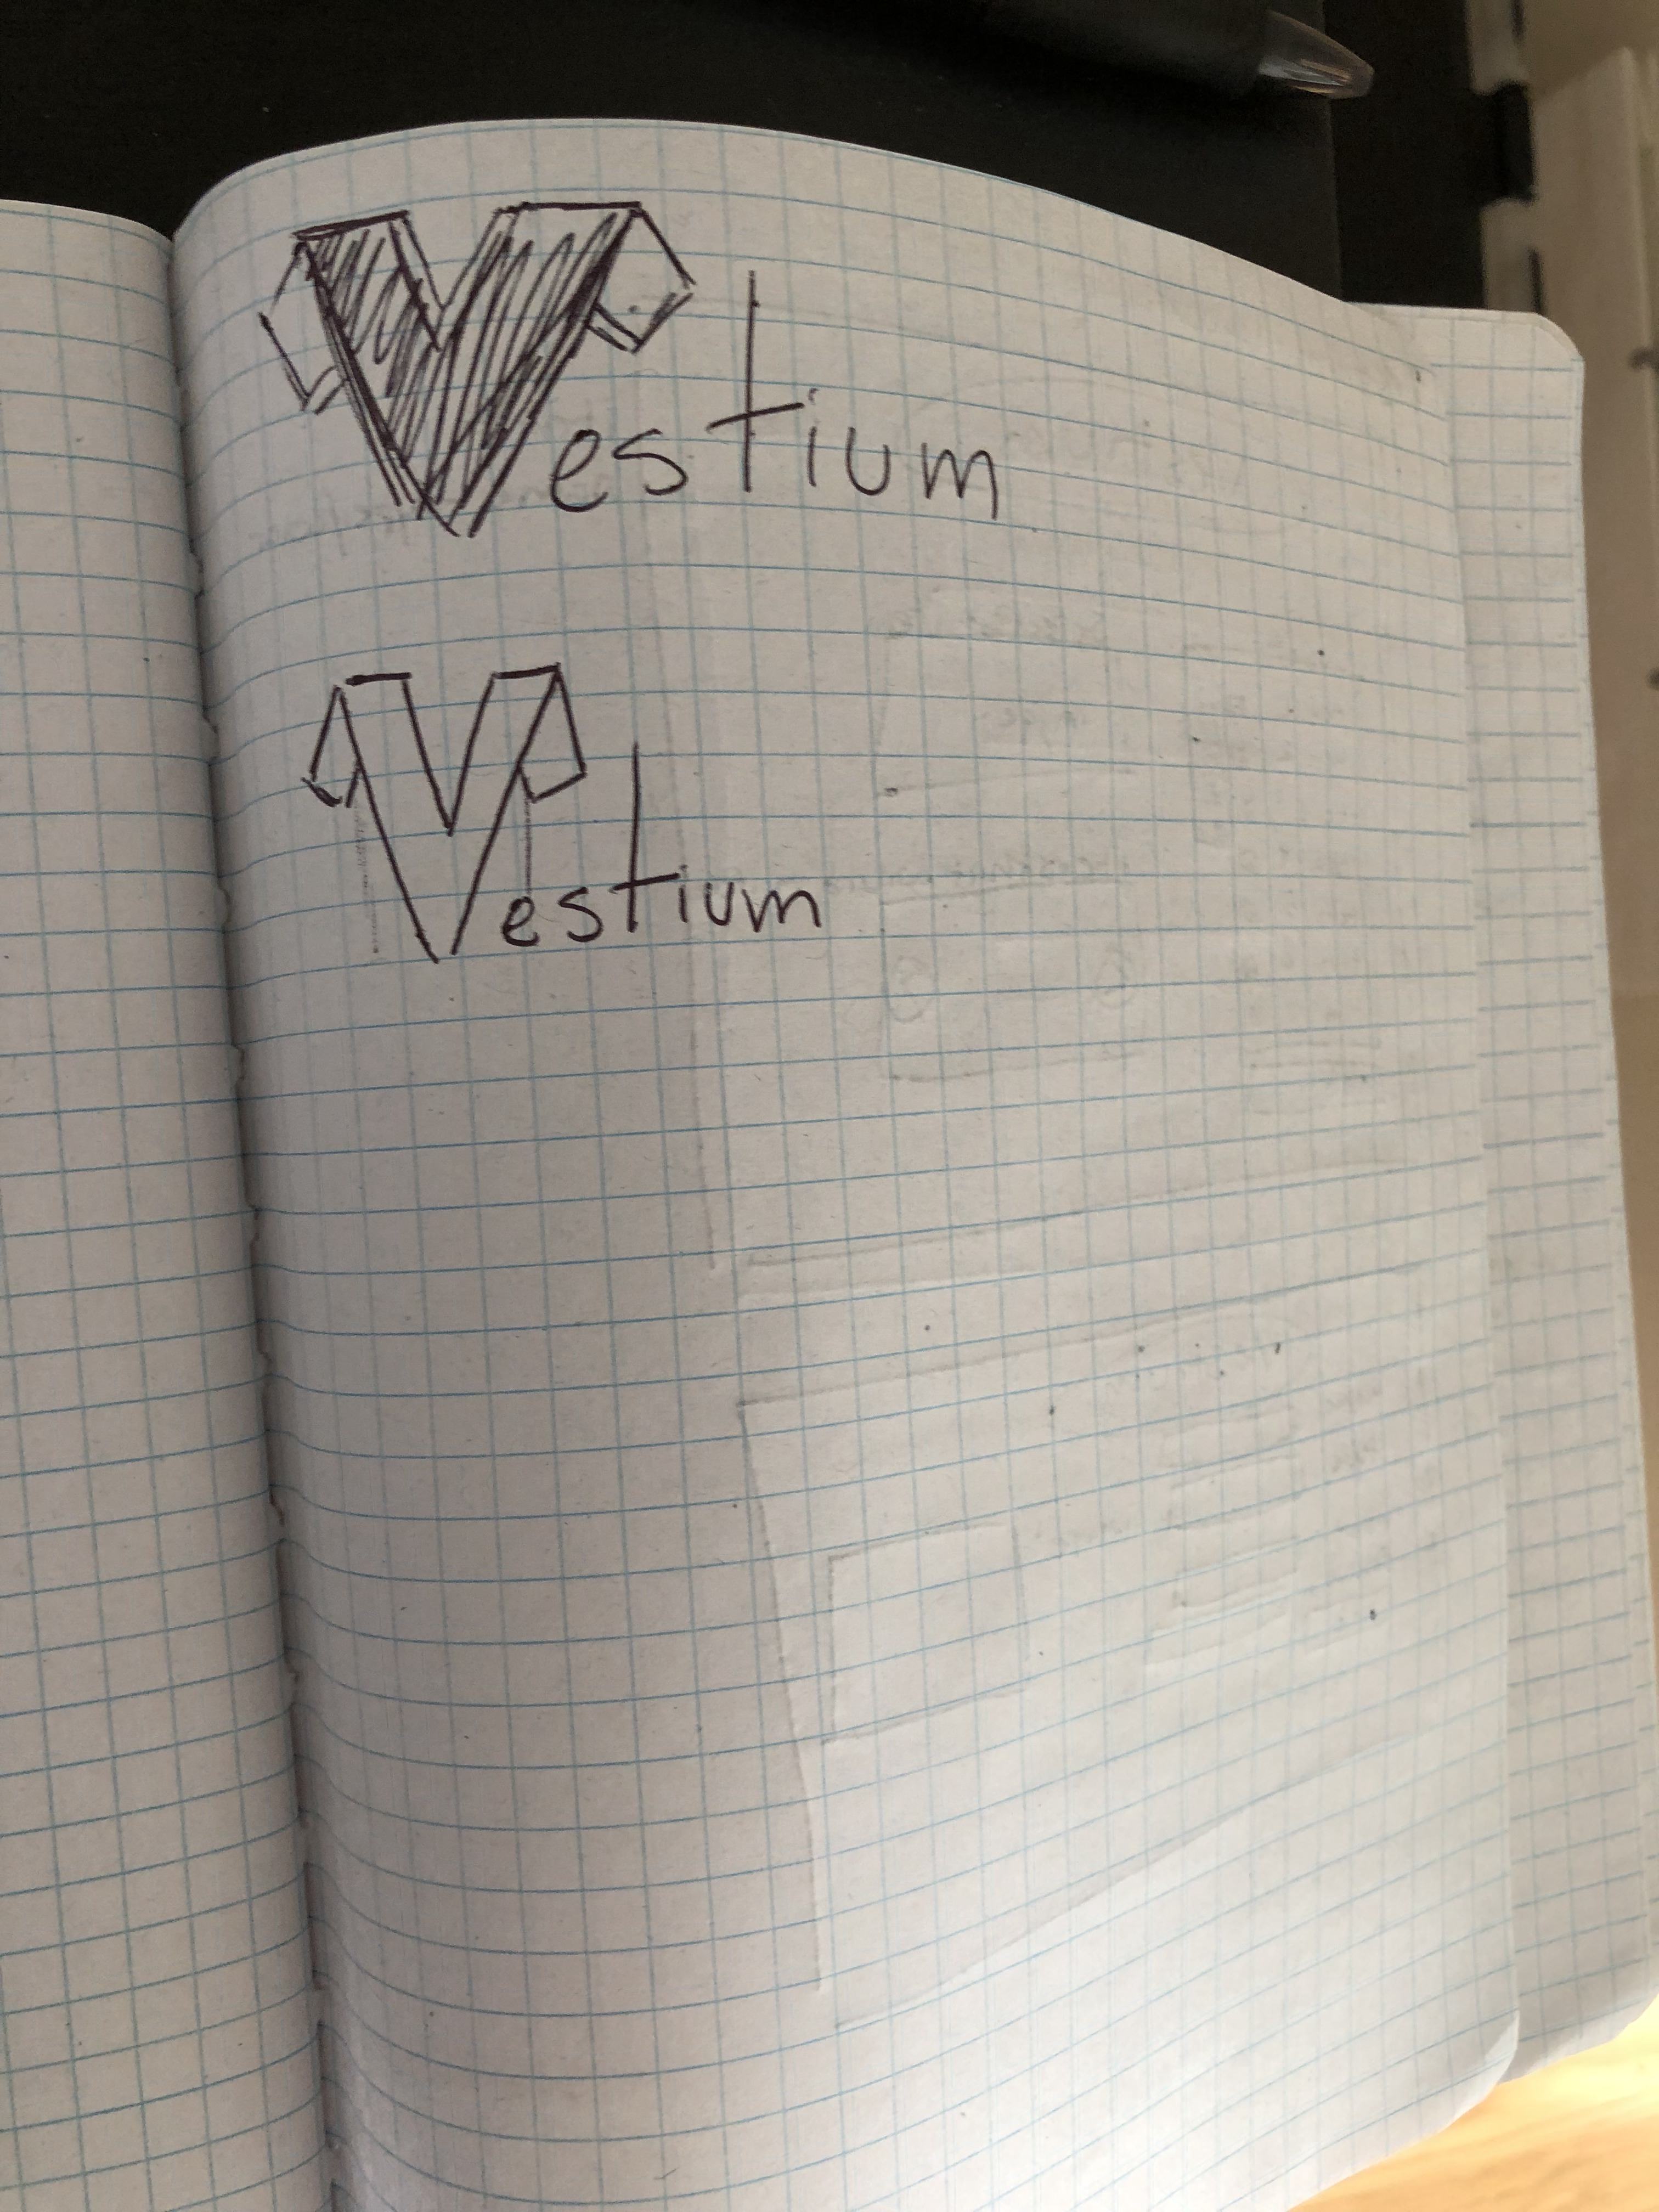 Vestium
Vestium